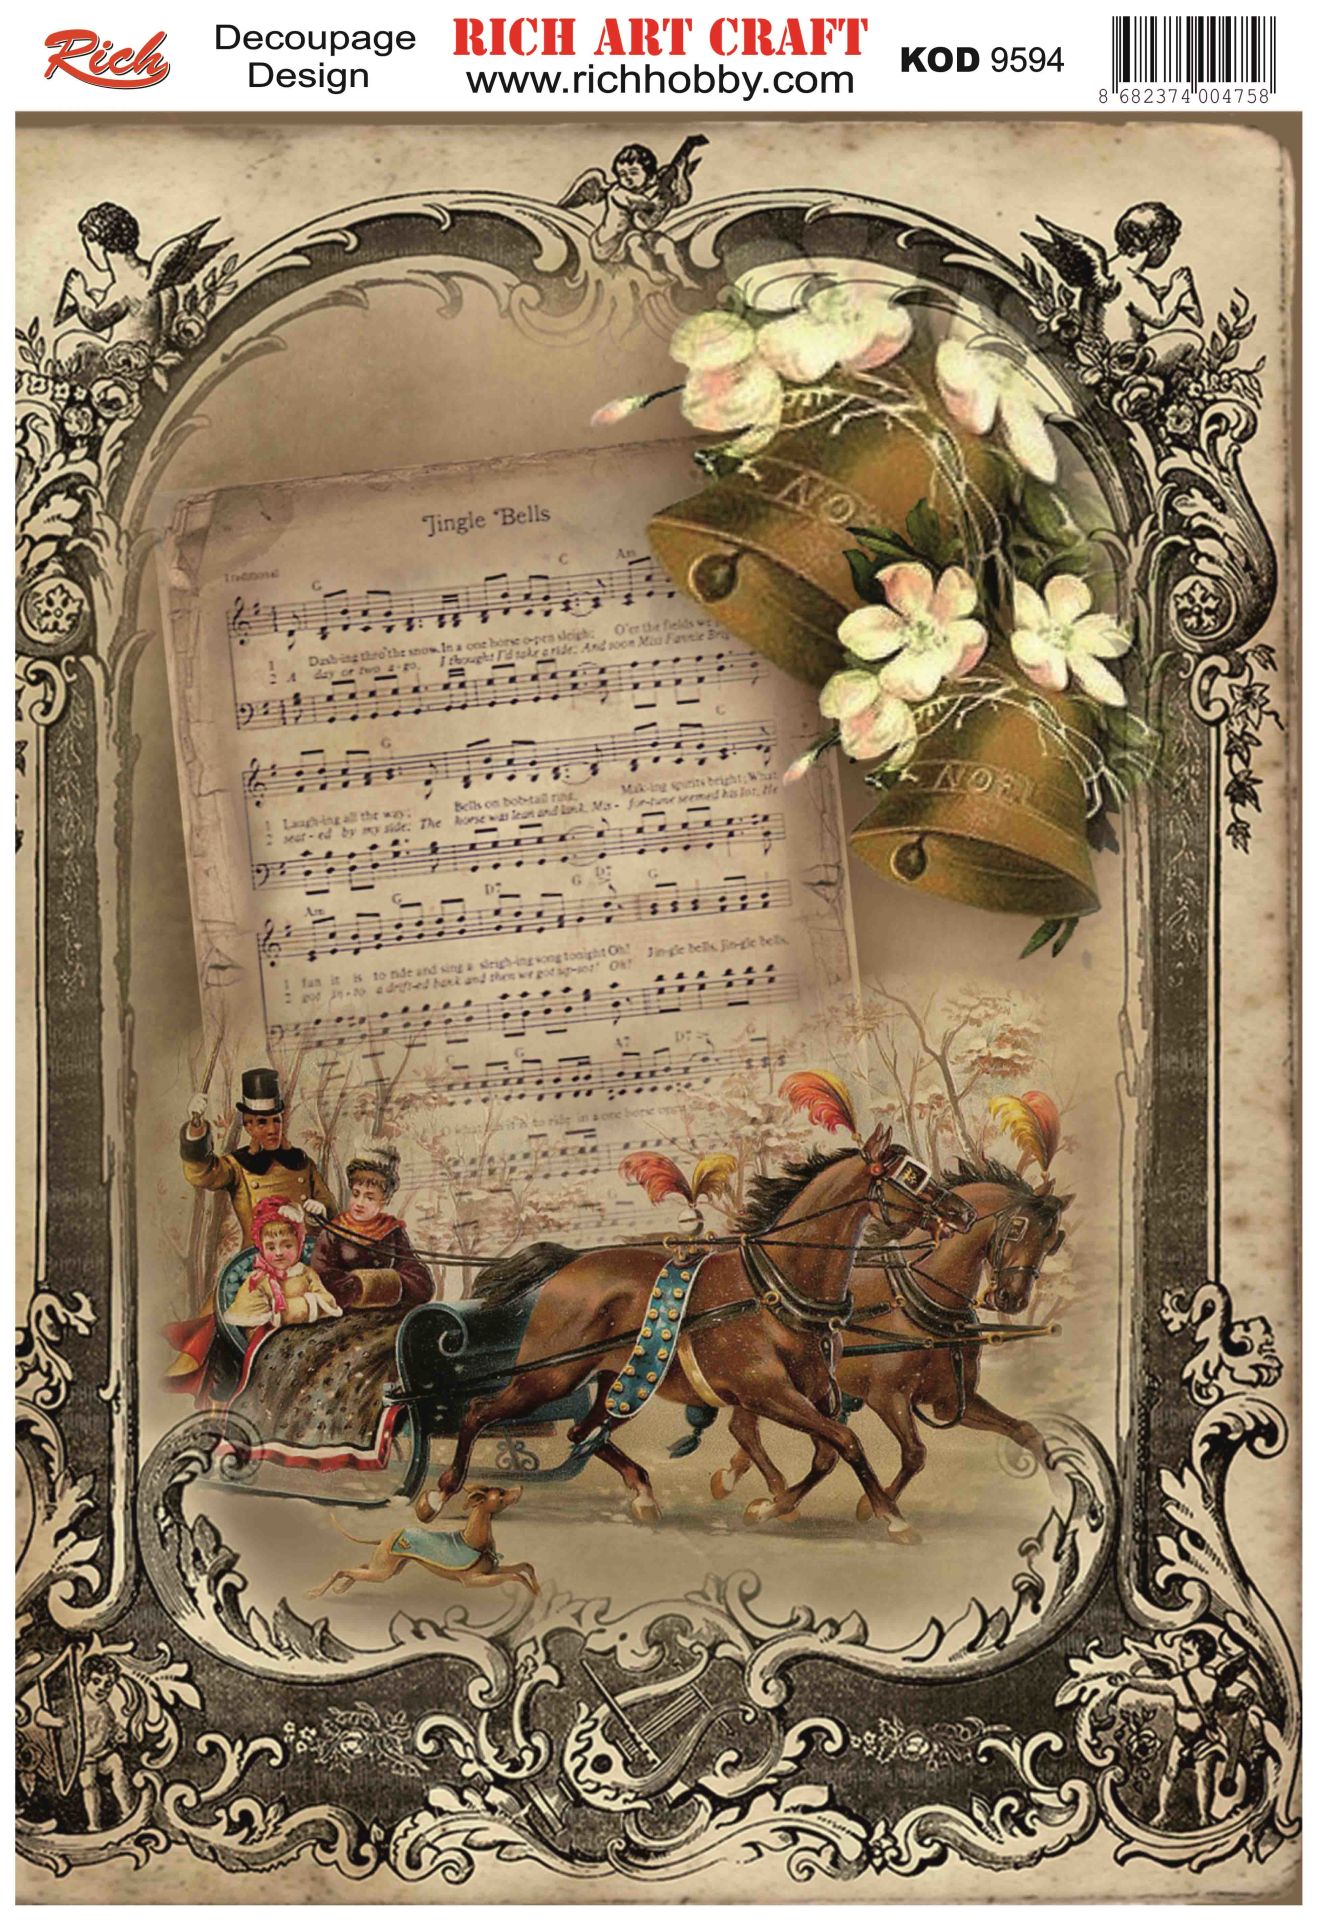 Rich
Decoupage
Design
RICH ART CRAFT
www.richhobby.com
KOD 9594
8 682374 004758
Jingle Bells
Traditional
G C Am
1 Dash-ing thro' the snow, In a one horse o-pen sleigh; O'er the fields we
2 A day or two a-go, I thought I'd take a ride; And soon Miss Fannie
G C
1 Laugh-ing all the way; Bells on bob-tail ring, Mak-ing spirits bright; What
2 seat-ed by my side; The horse was lean and lank, Mis- for-tune seemed his lot, He
Am G D7 G D7 G
1 fun it is to ride and sing a sleigh-ing song tonight Oh! Jin-gle bells, jin-gle bells,
2 got in-to a drift-ed bank and then we got up-sot! Oh!
C G A7 D7 G
fun it is to ride in a one horse open
G
NO
NOEL